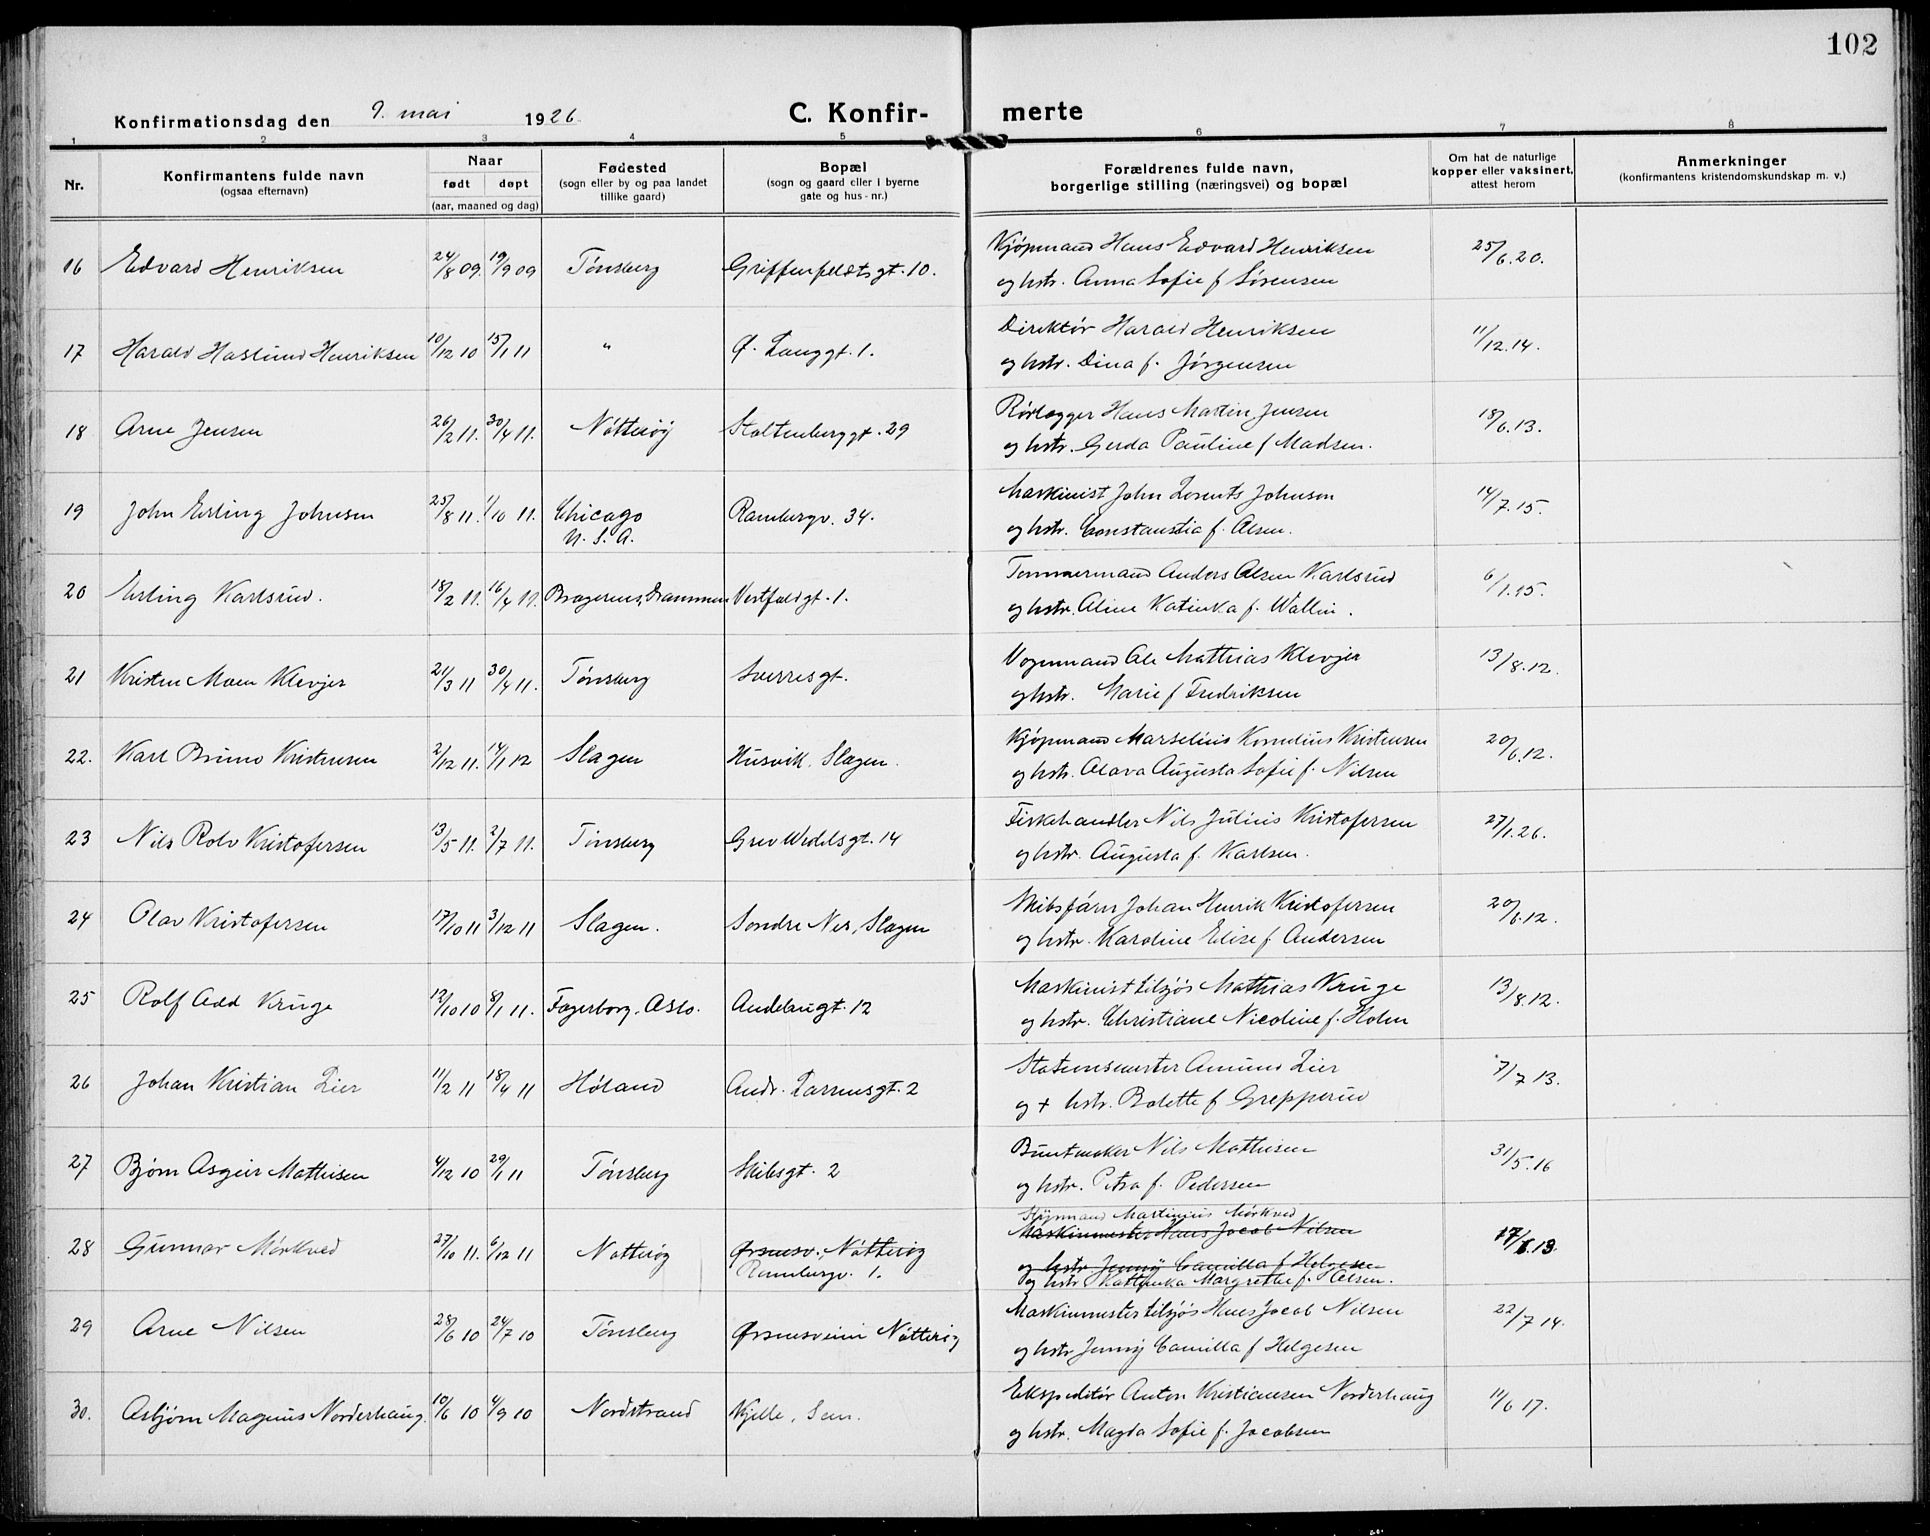 102
Konfirmationsdag den 9. mai 1926
C. Konfir-
merte
1 2 3 4 5 6 7 8
Nr.
Konfirmantens fulde navn
(ogsaa efternavn)
Naar
født døpt
(aar, maaned og dag)
Fødested
(sogn eller by og paa landet
tillike gaard)
Bopæl
(sogn og gaard eller i byerne
gate og hus-nr.)
Forældrenes fulde navn,
borgerlige stilling (næringsvei) og bopæl
Om hat de naturlige
kopper eller vaksinert,
attest herom
Anmerkninger
(konfirmantens kristendomskundskap m. v.)
Kjøpmand Hans Edvard Henriksen
16 Edvard Henriksen 24/8 09. 19/9 09 Tønsberg Griffenfeldtsgt. 10. 25/6.20.
og hstr. Anna Sofie f Sørensen
Direktør Harald Henriksen
17 Harald Haslund Henriksen 10/12 10 15/1 11 " Ø. Langgt. 1. 11/12.14.
og hstr. Dina f. Jørgensen
Rørlegger Hans Martin Jensen
18 Arne Jensen 26/2 11. 30/4 11. Nøtterøy Stoltenberggt. 29 18/6.13.
og hstr. Gerda Pauline f Madsen.
Maskinist John Lorents Johnson
19 John Erling Johnsen 25/8 11. 1/10 11. Chicago Rambergv. 34. 14/7.15.
U. S. A.
og hstr. Constanstia f. Olsen.
Tømmermand Anders Olsen Karlsrud
20 Erling Karlsrud. 18/2 11. 16/4 11. Bragernes, Drammen Vestfoldgt. 1. 6/1.15.
og hstr. Aline Katinka f. Wallin.
Vognmand Ole Mathias Klevjer
21 Kristen Moen Klevjer 21/3 11 30/4 11. Tønsberg Sverresgt. 13/8.12.
og hstr. Marie f Fredriksen
Kjøpmand Marselius Kornelius Kristensen
22. Karl Bruno Kristensen 2/12 11. 14/1 12 Slagen Husvik, Slagen. 20/6.12.
og hstr. Olava Augusta Sofie f. Nilsen
Fiskehandler Nils Julius Kristofersen
23 Nils Rolv Kristofersen 13/5 11. 2/7 11. Tønsberg Grev Wedelsgt. 14 27/1.26.
og hstr. Augusta f. Karlsen.
Skibsfører Johan Henrik Kristofersen
24 Olav Kristofersen 17/10 11 3/12 11 Slagen. Søndre Nes, Slagen 20/6.12.
og hstr. Karoline Elise f. Andersen
Maskinist tilsjøs Mathias Kruge
25 Rolf Odd Kruge 12/10 10 8/1 11. Fagerborg, Oslo. Andebugt. 12 13/8.12.
og hstr. Christiane Nicoline f. Holm
Stationsmester Amund Lier
26 Johan Kristian Lier 11/2 11 18/4 11 Høland Andr. Larsensgt. 2 7/7 13.
og + hstr. Bolette f Grepperud
Buntmaker Nils Mathisen
27 Bjørn Asgeir Mathisen 4/12 10 29/1 11 Tønsberg Skibsgt. 2 31/5.16
og hstr. Petra f. Pedersen
Styrmand Martinius Mørkved
Maskinmester Hans Jacob Nilsen
28 Gunnar Mørkved 27/10 11. 6/12 11 Nøtterøy Ørsnesv., Nøtterøy
Rambergv. 1.
og hstr. Jenny Camilla f Helgesen
og hstr Kathinka Margrethe f. Olsen.
Maskinmester tilsjøs Hans Jacob Nilsen
29 Arne Nilsen 28/6 10 24/7 10 Tønsberg Ørsnesveien Nøtterøy 22/7 14.
og hstr Jenny Camilla f Helgesen
Ekspeditør Anton Kristiansen Norderhaug
30. Asbjørn Magnus Norderhaug. 10/6 10 4/9 10 Nordstrand Kjelle, Sem. 11/6 17.
og hstr. Magda Sofie f. Jacobsen